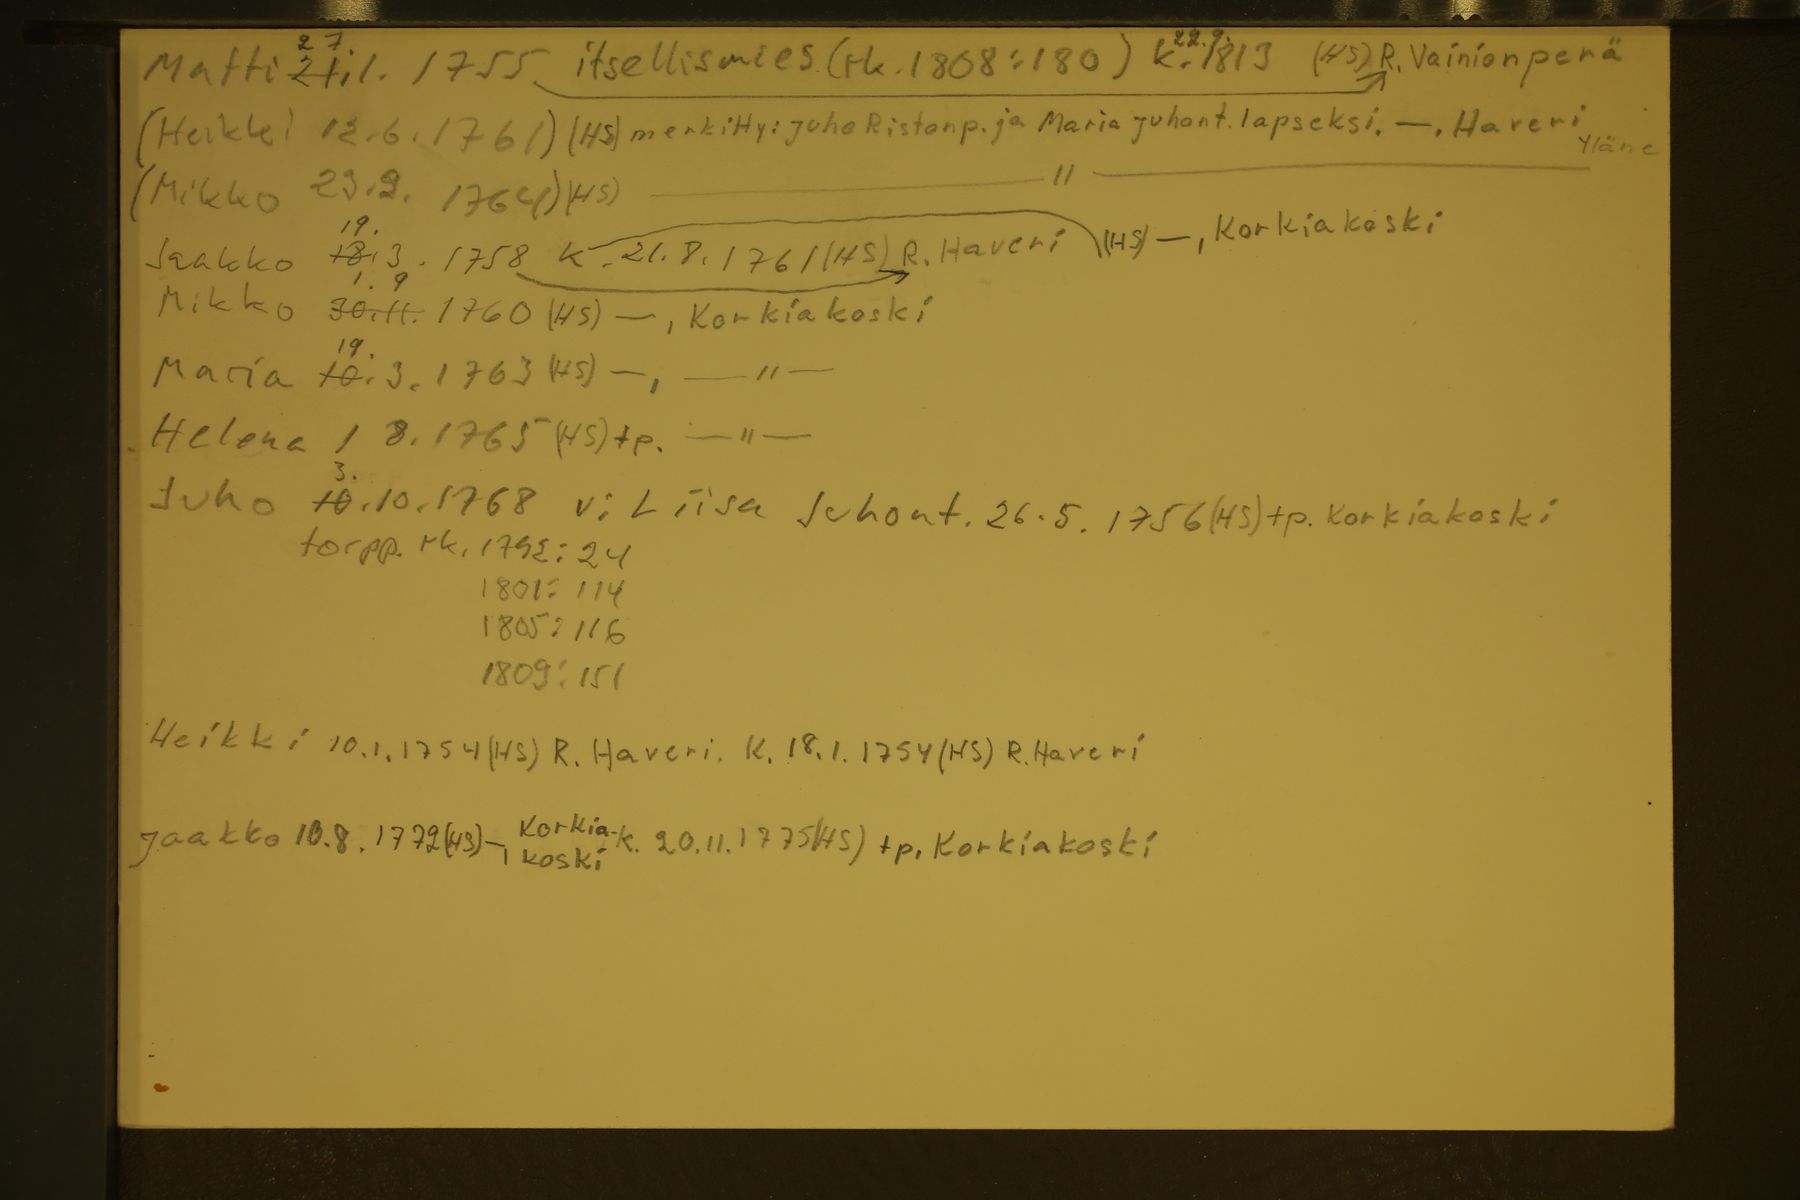 27.
Matti 21.1. 1755 itsellismies (rk. 1808:180) k. 22.9. 1813 (HS) R. Vainionperä
(Heikki 12.6.1761) (HS) merkitty: Juho Ristonp. ja Maria Juhont. lapseksi. —, Haveri
Yläne
(Mikko 29.9. 1764) (HS) — " —
19.
Jaakko 18.3. 1758 k. 21.8.1761 (HS) R. Haveri (HS) —, Korkiakoski
1. 9
Mikko 30.11. 1760 (HS) —, Korkiakoski
19.
Maria 10.3.1763 (HS) —, — " —
Helena 1 8.1765 (HS) tp. — " —
3.
Juho 10.10.1768 v: Liisa Juhont. 26.5.1756 (HS) tp. Korkiakoski
torpp. rk. 1792:24
1801:114
1805:116
1809:151
Heikki 10.1.1754 (HS) R. Haveri. K. 18.1.1754 (HS) R. Haveri
Jaakko 10.8.1772 (HS) —, Korkiakoski k. 20.11.1775 (HS) tp. Korkiakoski